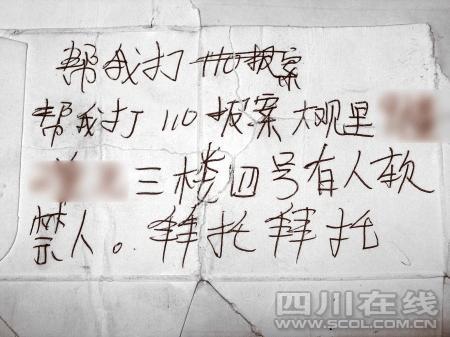 帮我打 110报案
帮我打 110 报案 大观里
三楼四号有人软
禁人。拜托拜托
四川在线
WWW.SCOL.COM.CN